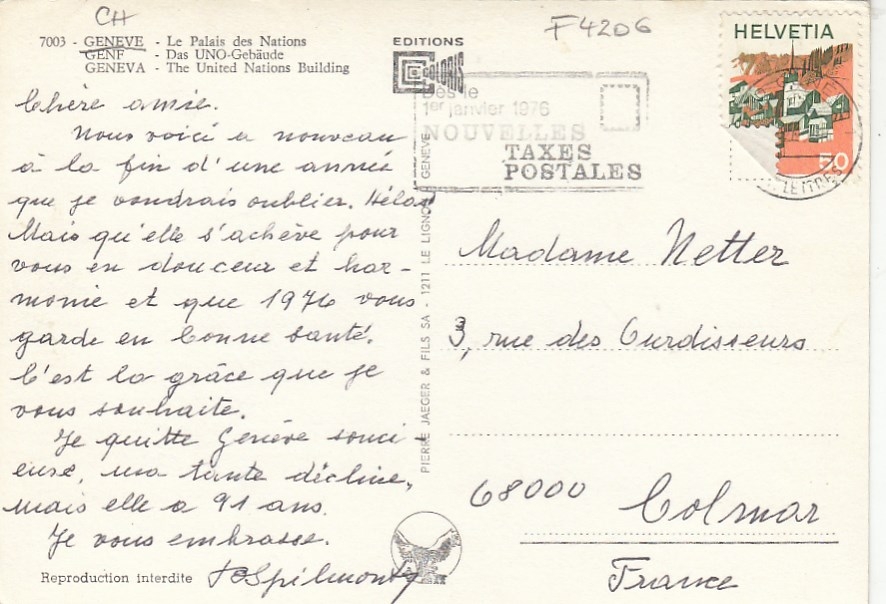 CH
F4206
7003 - GENEVE - Le Palais des Nations
GENF - Das UNO-Gebäude
GENEVA - The United Nations Building
EDITIONS
HELVETIA
50
Dès le
1er janvier 1976
NOUVELLES
TAXES
POSTALES
LETTRES
Chère amie.
Nous voici a nouveau
à la fin d'une année
que je voudrais oublier. Hélas
Mais qu'elle s'achève pour
vous en douceur et har-
monie et que 1976 vous
garde en bonne santé.
C'est la grâce que je
vous souhaite.
Je quitte Genève souci-
euse, ma tante décline,
mais elle a 91 ans.
Je vous embrasse.
PIERRE JAEGER & FILS SA - 1211 LE LIGNON GENEVE
Madame Netter
3, rue des Ourdisseurs
68000 Colmar
France
Reproduction interdite